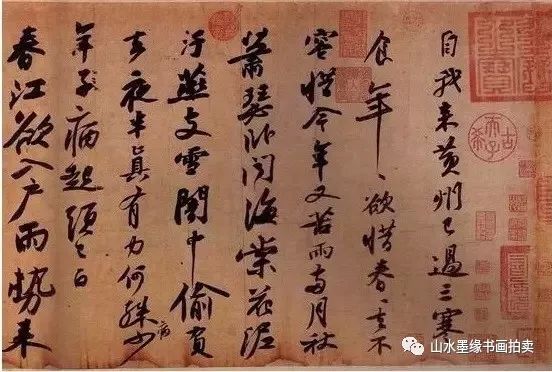 自我来黄州已過三寒
食年〻欲惜春〻去不
容惜今年又苦雨兩月秋
蕭瑟卧聞海棠花泥
汙燕支雪闇中偷負
去夜半真有力何殊少
病
年子病起頭已白
春江欲入户雨勢来
古希天子
山水墨缘书画拍卖